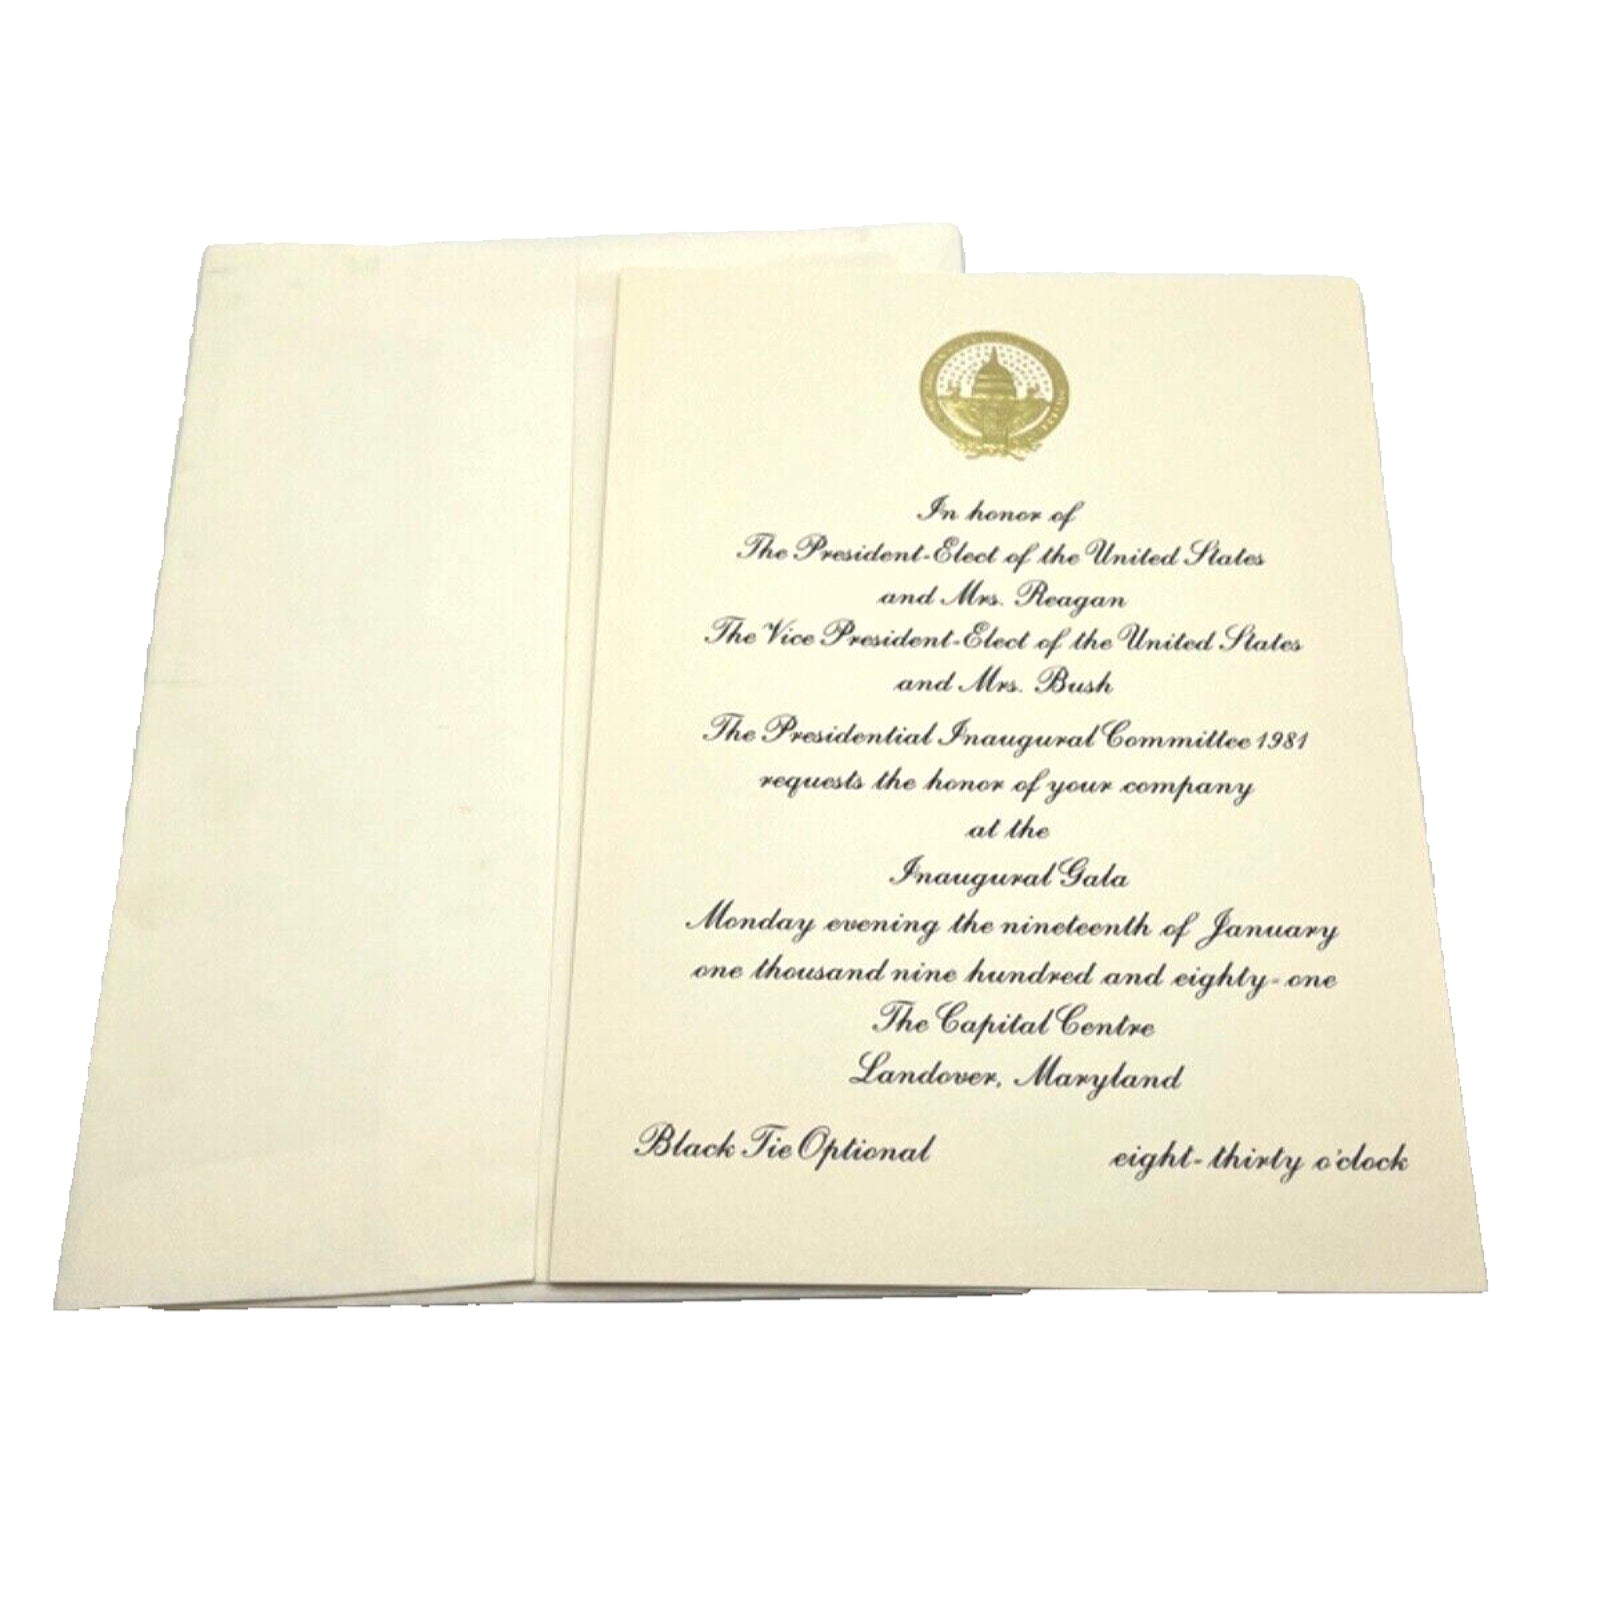 In honor of
The President-Elect of the United States
and Mrs. Reagan
The Vice President-Elect of the United States
and Mrs. Bush
The Presidential Inaugural Committee 1981
requests the honor of your company
at the
Inaugural Gala
Monday evening the nineteenth of January
one thousand nine hundred and eighty-one
The Capital Centre
Landover, Maryland
Black Tie Optional
eight-thirty o'clock